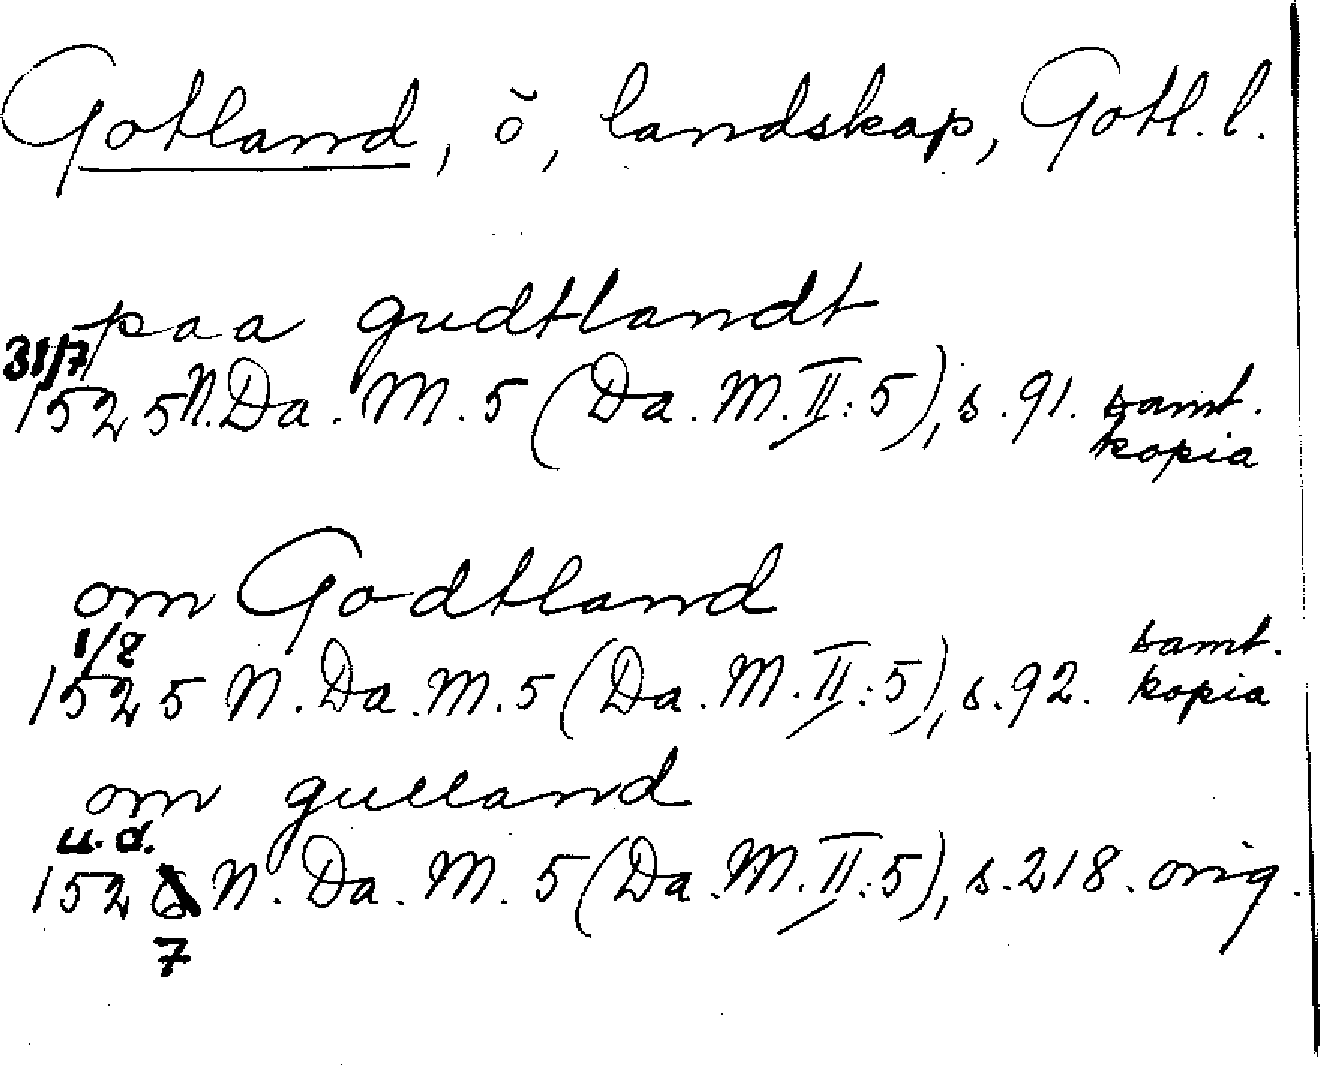 Gotland, ö, landskap, Gotl. l.
paa gudtlandt
31/7
1525 N. Da. M. 5 (Da. M. II:5), s. 91. samt.
kopia
om Godtland
1/8
1525 N. Da. M. 5 (Da. M. II:5), s. 92. samt. kopia
om gulland
u. d.
152 N. Da. M. 5 (Da. M. II:5), s. 218. orig.
7